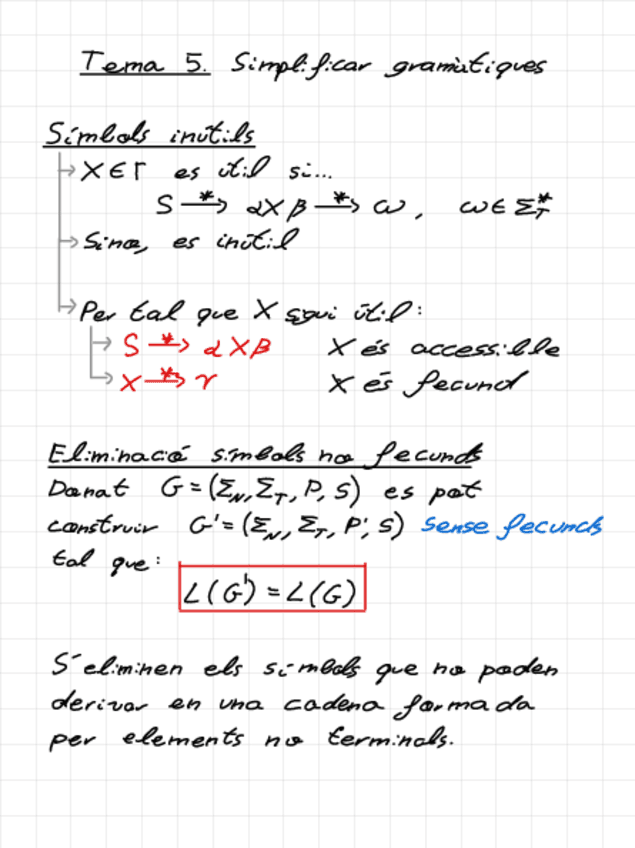 Tema 5. Simplificar gramàtiques
Símbols inútils
X ∈ Γ es útil si...
S *→ αXβ *→ ω, ω ∈ Σ_T^*
Sino, es inútil
Per tal que X sgui útil:
S *→ αXβ X és accessible
X *→ γ X és fecund
Eliminació símbols no fecunds
Donat G = (Σ_N, Σ_T, P, S) es pot
construir G' = (Σ_N, Σ_T, P', S) sense fecunds
tal que:
L(G') = L(G)
S'eliminen els símbols que no poden
derivar en una cadena formada
per elements no terminals.